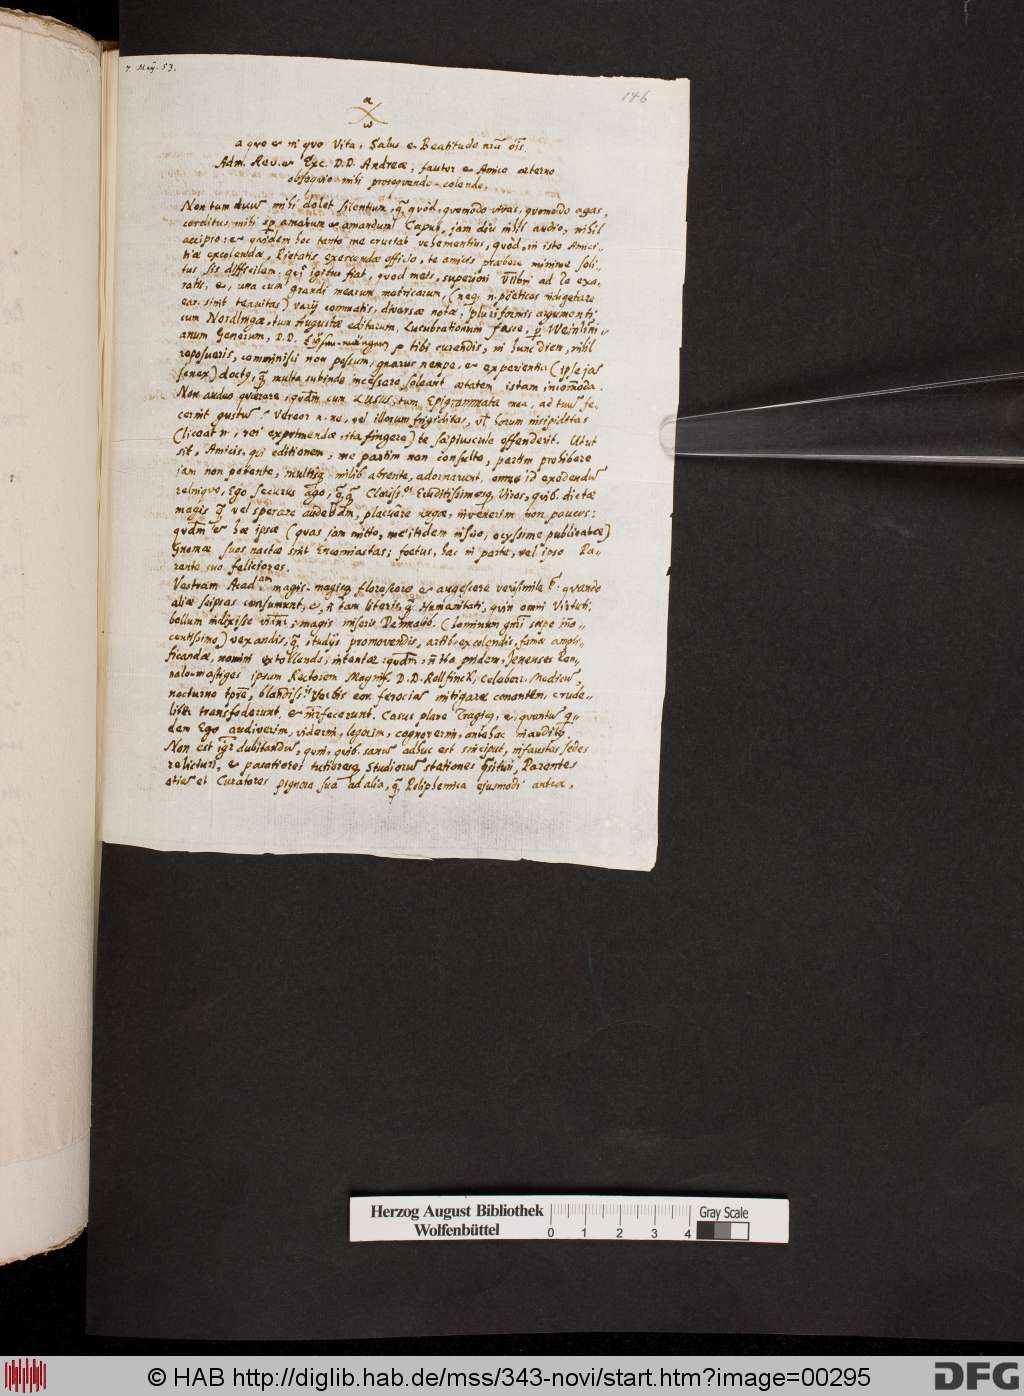 7. Maij. 53.
146
α
ω
a quo et in quo Vita, Salus et Beatitudo nrã oĩs.
Adm. Rev. et Exc. D.D. Andreæ, fautor et Amico æterno
obsequio mihi prosequendo-colendo,
Non tam duum mihi dolet silentium, quod, quomodo vivas, quomodo agas,
corditus mihi amatum et amandum Caput, jam diu nihil audio, nihil
accipio: et quidem hoc tanto me cruciat vehementius, quod, in isto Amici-
tiæ excolendæ, Pietatis exercendæ officio, te amicis præbere minime soli-
tus sis difficilem. igitur fiat, quod meis, superiori ad Te exa-
ratis, et, una cum grandi mearum matricarum, (neq. n. pöeticas indigetare
sinit tenuitas) varij commatis, diversæ notæ, pluriformis argumenti
cum Nordlingæ, tum Augustæ editarum, Lucubrationum fasce, Weinlini-
anum Generum, D.D. tibi curandis, in hunc diem, nihil
reposueris, comminisci non possum, gnarus nempe, et experientia (ipse jã
senex) docty, multa subinde incessere soleant ætatem istam incõmoda.
Non audeo quærere, quidm cum LUSUS, tum Epigrammata mea, ad tuũ fe-
cerint gustum? Vereor n. ne, vel illorum frigiditas, vel horum insipiditas
(liceat n. rei exprimendæ, ita fingere) te sæpiuscule offenderit. Utut
sit, Amicis, qui editionem, me partim non consulto, partim prohibere
jam non potente, mihiq absente, adornarunt, omne id exedendũ
relinquo, Ego securus ago, Clariss. et Eruditissimosq Viros, quib. dictæ
magis vel sperare audebam, placuêre nugæ, invenerim non paucos:
quidm et hæ ipsæ (quas jam mitto, me itidem inscio, ocyssime publicatæ)
Gnomæ suos nactæ sint Encomiastas; foetus, hac in parte, vel ipso Pa-
rente suo feliciores.
Vestram Acad. magis-magisq florescere et augescere verisimile quando
aliæ seipsas consumunt, et, tam literis, Humanitati, quin omni Virtuti,
bellum indixisse magis miseris Pennalib. (hominum sæpe inno-
centissimo) vexandis, studijs promovendis, artib. excolendis, famæ ampli-
ficandæ, nomini extollendo, intentæ pridem, Jenenses Pen-
nalo-mastiges ipsum Rectorem Magnif. D.D. Rolfinck, Celeberr. Medicum,
nocturno tpre, blandiss. Verbis eor. ferociam mitigare conantem, crude-
liter transfoderunt, et interfecerunt. Casus plane Tragicq, et, quantum qi-
dem Ego audiverim, viderim, legerim, cognoverim, antehac inauditq.
Non est igr dubitandũ, quin, quib. sanum adhuc est sinciput, infaustas sedes
relicturi, et pacatiores tutioresq Studiorũ stationes quæsituri, Parentes
etiam et Curatores pignora sua ad alia, Poliphemica ejusmodi antra,
Herzog August Bibliothek
Wolfenbüttel
0 1 2 3 4
Gray Scale
© HAB http://diglib.hab.de/mss/343-novi/start.htm?image=00295
DFG